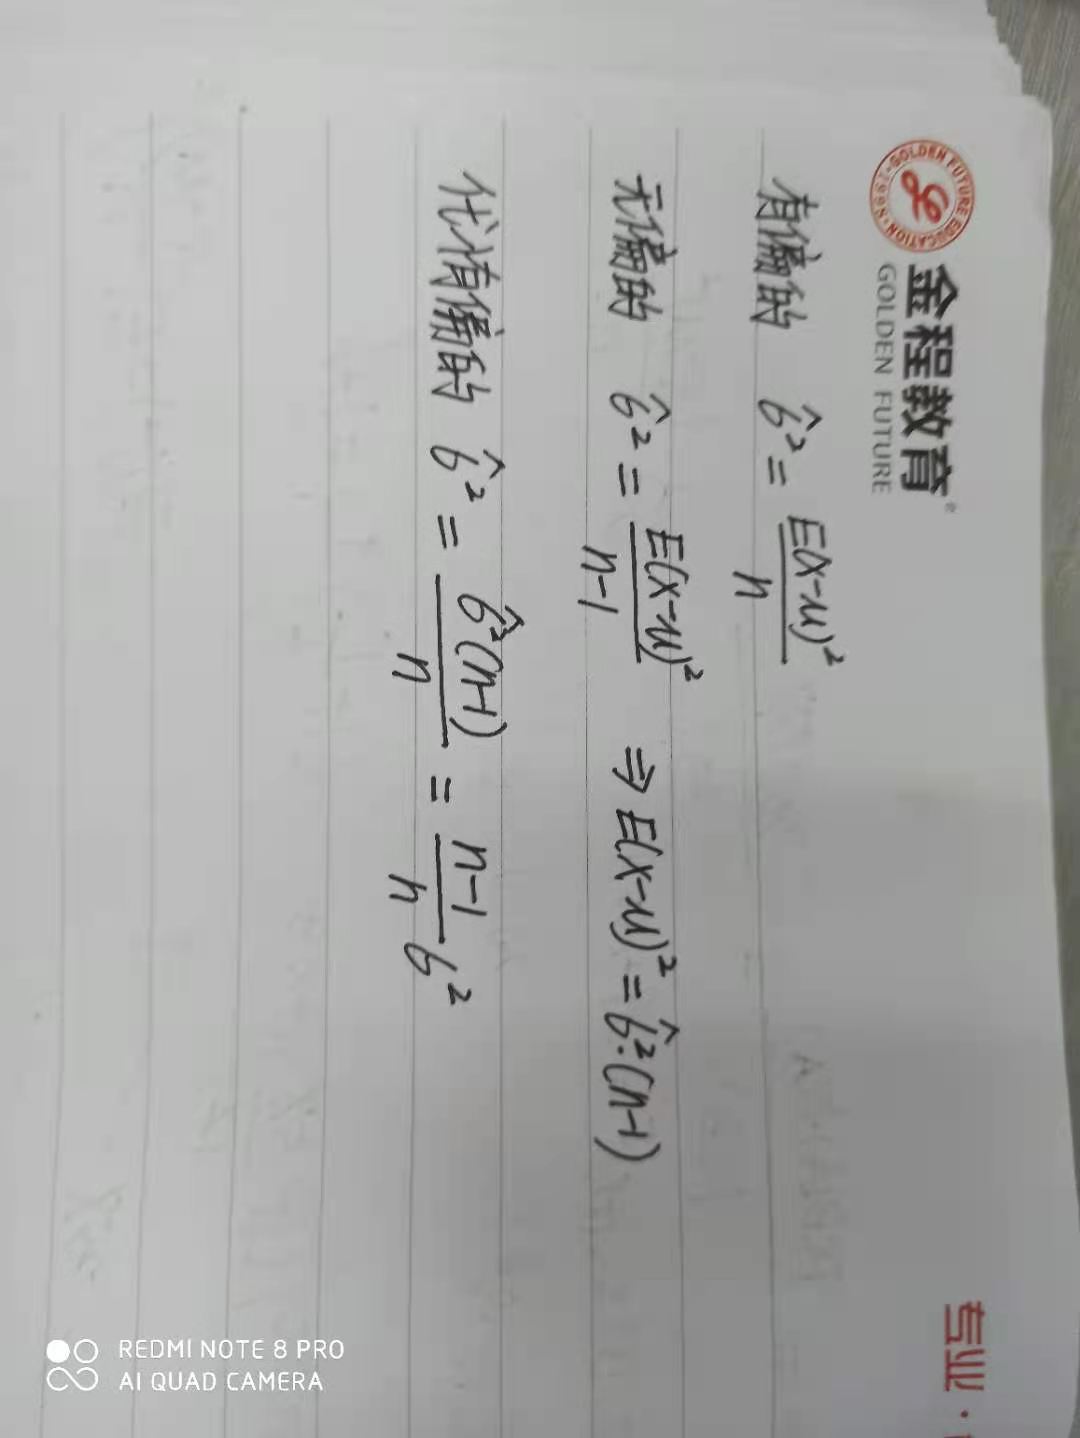 GOLDEN FUTURE EDUCATION · SINCE 1998 ·
金程教育®
GOLDEN FUTURE
专业 ·
有偏的 σ̂² = E(x-μ)² / n
无偏的 σ̂² = E(x-μ)² / n-1 ⇒ E(x-μ)² = σ̂²·(n-1)
代有偏的 σ̂² = σ̂²(n-1) / n = n-1 / n σ²
REDMI NOTE 8 PRO
AI QUAD CAMERA